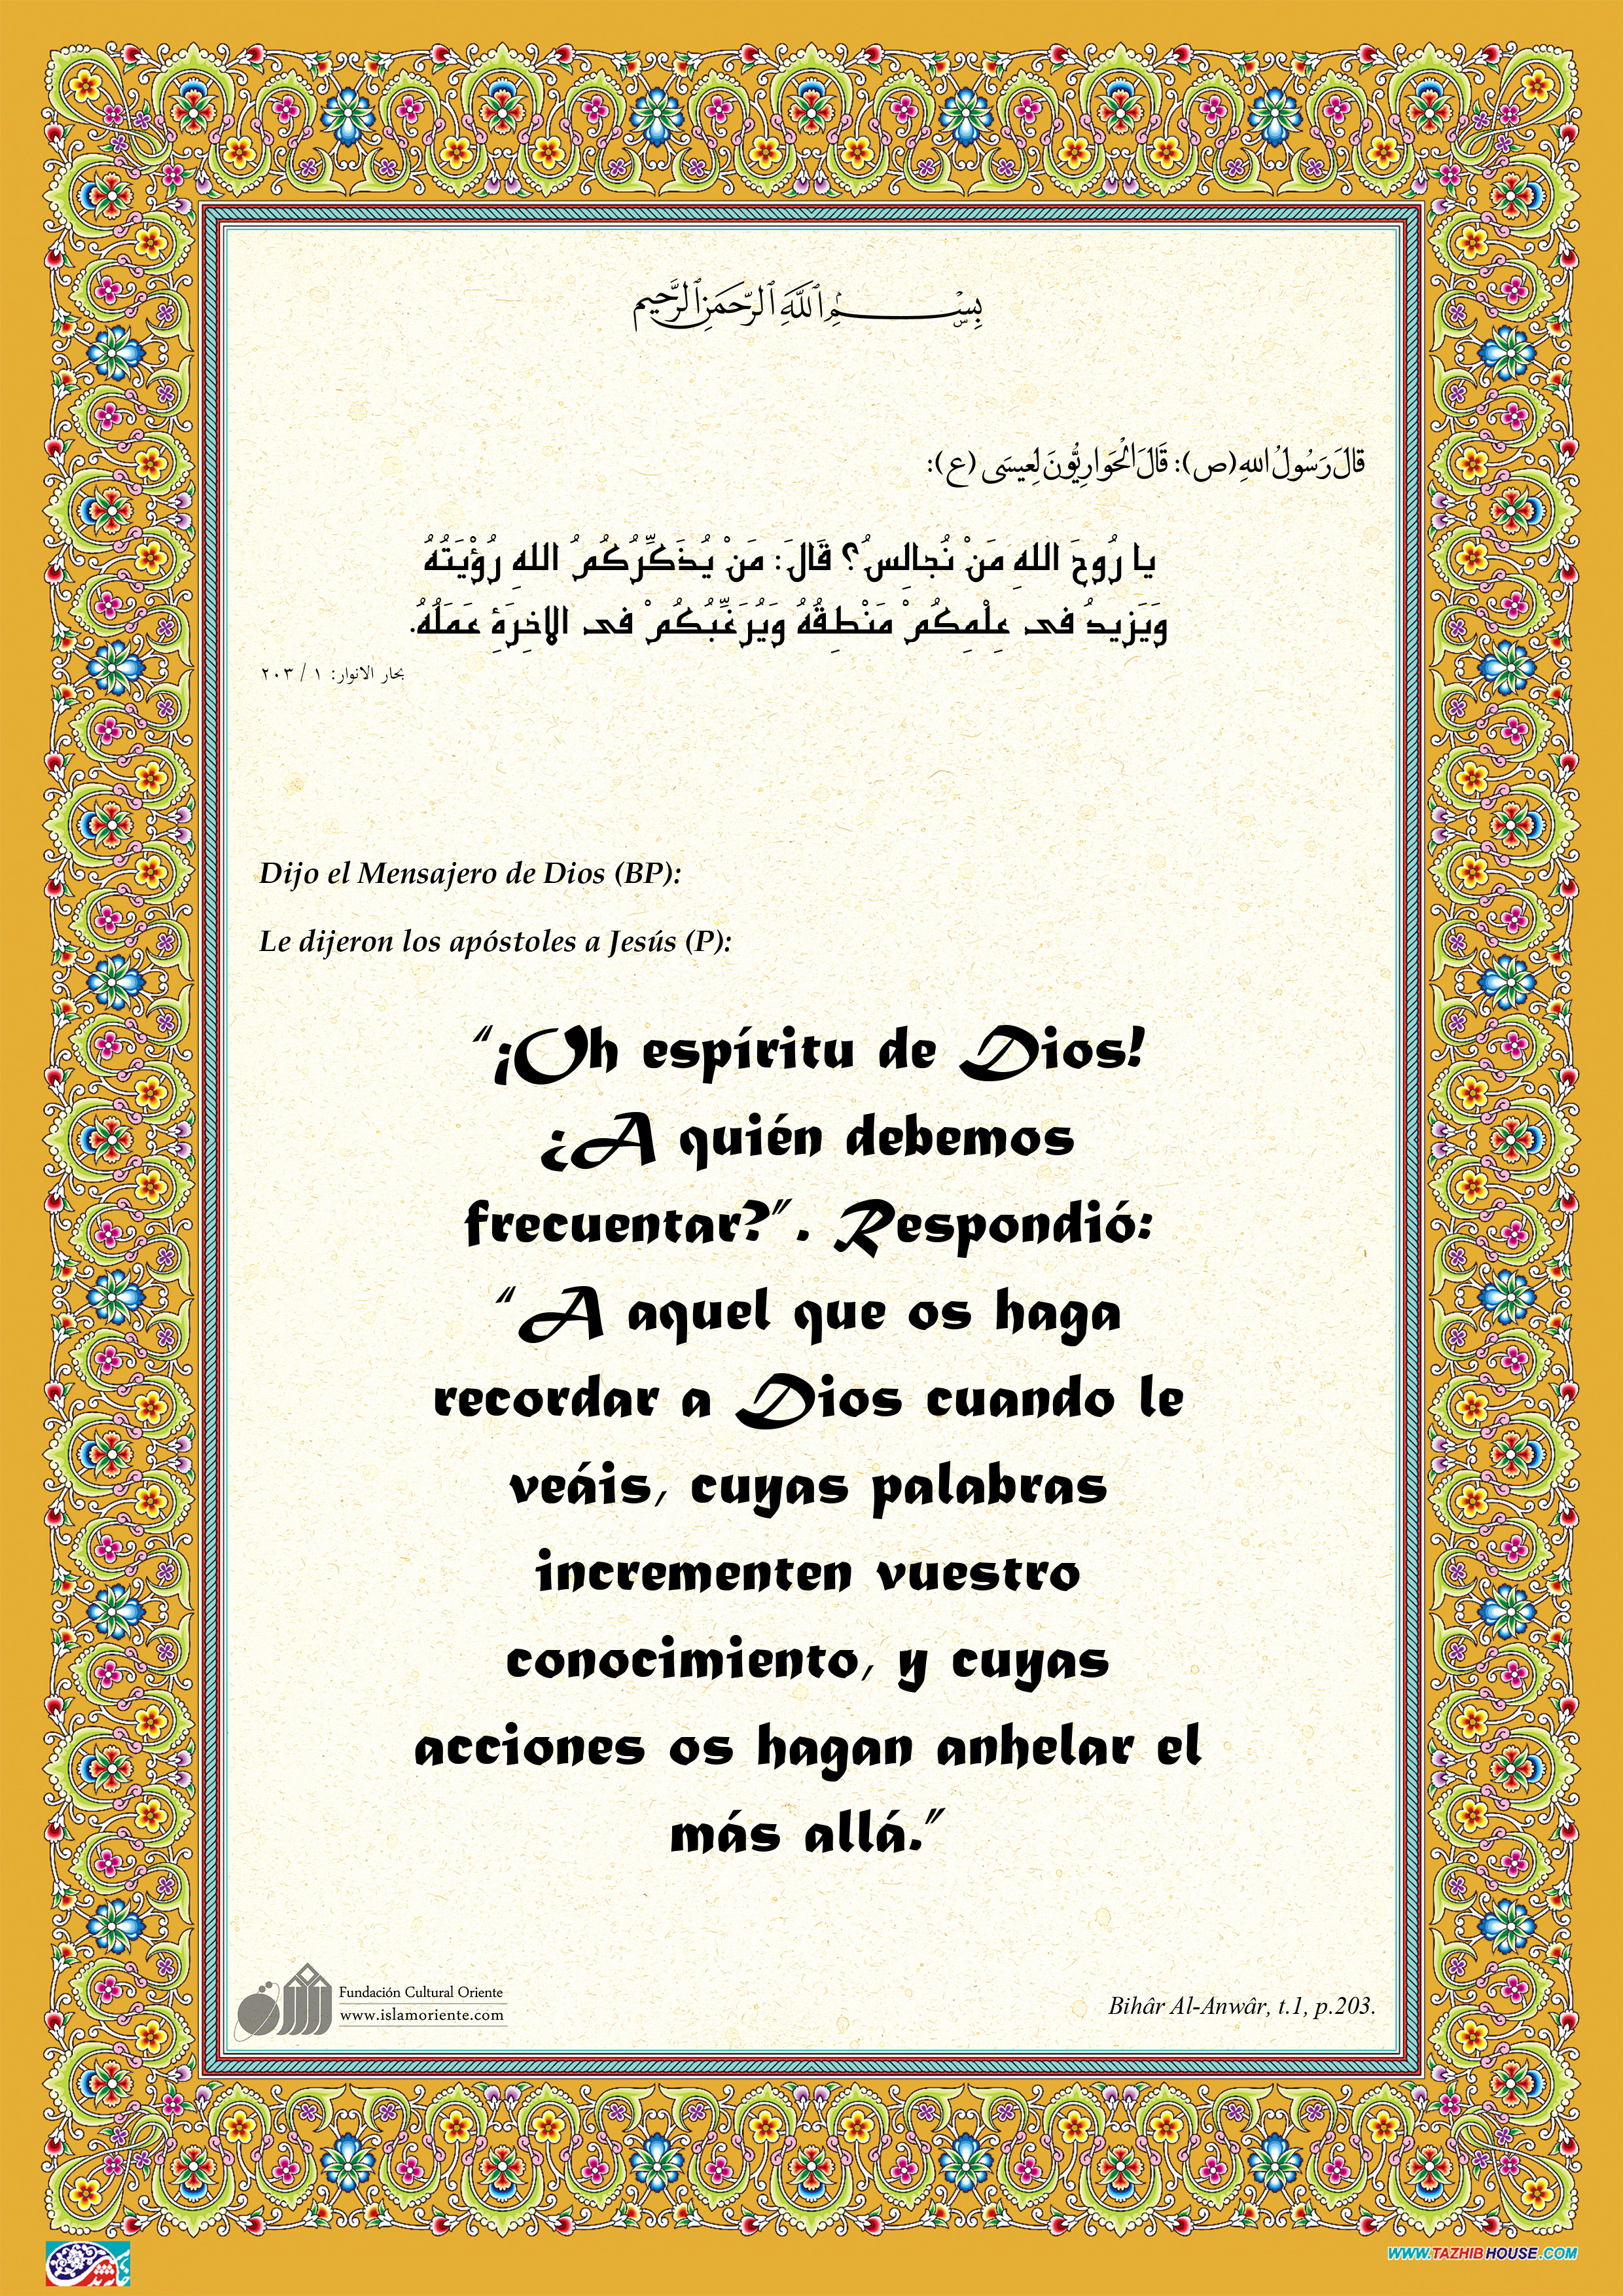 بِسْمِ ٱللَّهِ ٱلرَّحْمَنِ ٱلرَّحِيمِ
قالَ رَسُولُ اللهِ (ص): قَالَ الْحَوَارِيُّونَ لِعِيسَى (ع):
يا رُوحَ اللهِ مَنْ نُجالِسُ؟ قَالَ: مَنْ يُذَكِّرُكُمُ اللهِ رُؤْيَتُهُ
وَيَزيدُ فى عِلْمِكُمْ مَنْطِقُهُ وَيُرَغِّبُكُمْ فى الاخِرَةِ عَمَلُهُ.
بحار الانوار: ١ / ٢٠٣
Dijo el Mensajero de Dios (BP):
Le dijeron los apóstoles a Jesús (P):
“¡Oh espíritu de Dios!
¿A quién debemos
frecuentar?”. Respondió:
“A aquel que os haga
recordar a Dios cuando le
veáis, cuyas palabras
incrementen vuestro
conocimiento, y cuyas
acciones os hagan anhelar el
más allá.”
Fundación Cultural Oriente
www.islamoriente.com
Bihâr Al-Anwâr, t.1, p.203.
WWW.TAZHIBHOUSE.COM